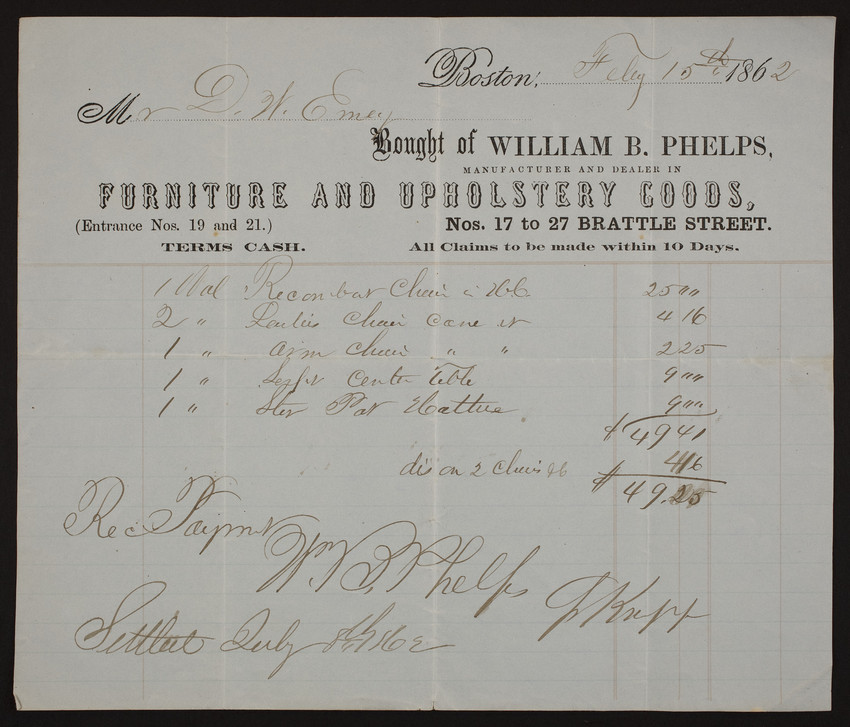 Boston, Feby 15th 1862
Mr D. W. Emey
Bought of WILLIAM B. PHELPS,
MANUFACTURER AND DEALER IN
FURNITURE AND UPHOLSTERY GOODS,
(Entrance Nos. 19 and 21.) Nos. 17 to 27 BRATTLE STREET.
TERMS CASH. All Claims to be made within 10 Days.
1 Wal Chair 25 " "
2 " Chair Cane 4 16
1 " arm Chair " " 2 25
1 " Center Table 9 " "
1 " Pat 9 " "
$ 49 41
dis on 2 Chairs 4 16
$ 49.25
Rec Paymt
Wm B. Phelps
J Knapp
Settled July